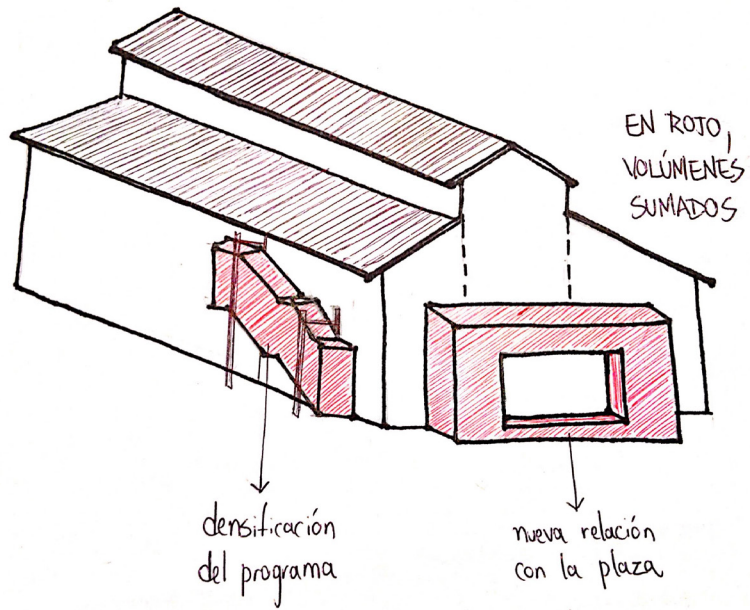 EN ROJO,
VOLÚMENES
SUMADOS
densificación
del programa
nueva relación
con la plaza